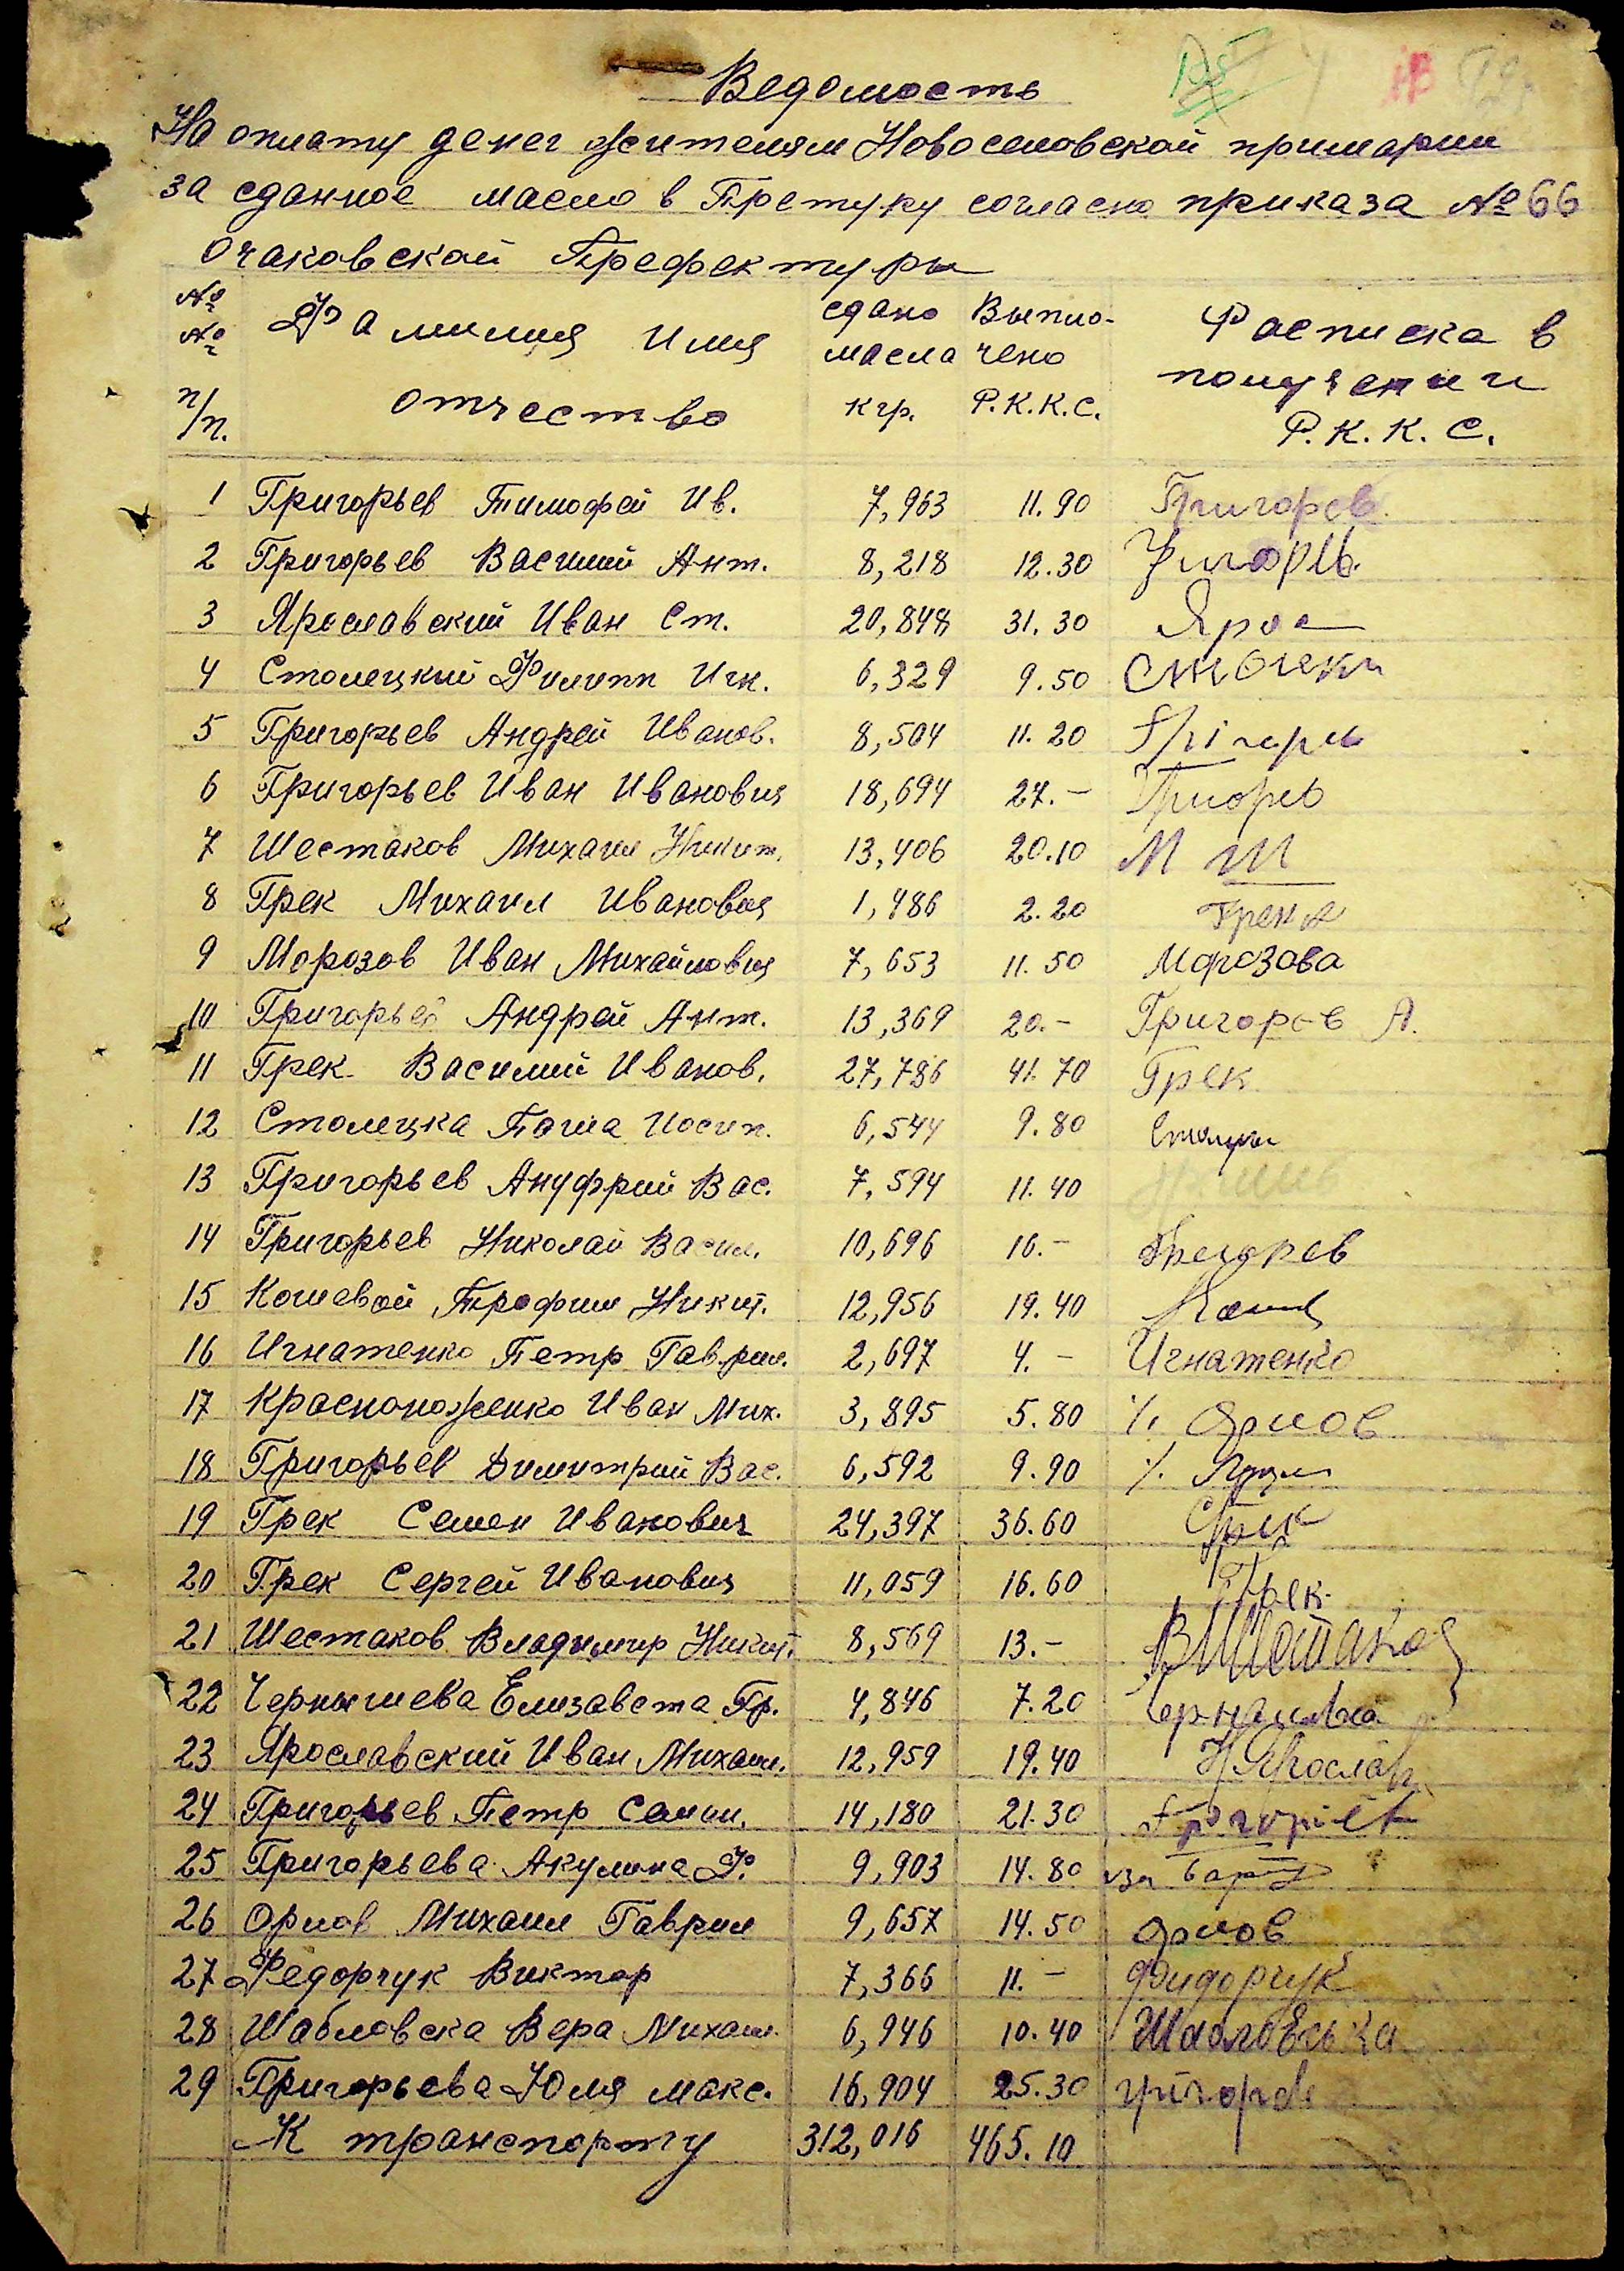 Ведомость
На оплату денег жителям Новоселовской примарии
за сданное масло в Претуру согласно приказа № 66
Очаковской Префектуры
№ № п/п. Фамилия Имя отчество сдано масла кгр. Выпло-чено Р.К.К.С. Расписка в получении Р.К.К.С.
1 Григорьев Тимофей Ив. 7,963 11.90 Григорев.
2 Григорьев Василий Ант. 8,218 12.30
3 Ярославский Иван Ст. 20,848 31.30 Яро
4 Столецкий Филипп Игн. 6,329 9.50
5 Григорьев Андрей Иванов. 8,504 11.20
6 Григорьев Иван Иванович 18,694 27.-
7 Шестаков Михаил Никит. 13,406 20.10 М Ш
8 Грек Михаил Иванович 1,486 2.20
9 Морозов Иван Михайлович 7,653 11.50 Морозова
10 Григорьев Андрей Ант. 13,369 20.- Григоров А.
11 Грек Василий Иванов. 27,786 41.70 Грек
12 Столецка Паша Иосип. 6,544 9.80
13 Григорьев Ануфрий Вас. 7,594 11.40
14 Григорьев Николай Васил. 10,696 16.- Грегорев
15 Кошевой Трофим Никит. 12,956 19.40
16 Игнатенко Петр Гаврил. 2,697 4.- Игнатенко
17 Красноноженко Иван Мих. 3,895 5.80 Орлов
18 Григорьев Димитрий Вас. 6,592 9.90
19 Грек Семен Иванович 24,397 36.60
20 Грек Сергей Иванович 11,059 16.60 Грек.
21 Шестаков Владимир Никит. 8,569 13.- ВШестаков
22 Чернышева Елизавета Гр. 4,846 7.20
23 Ярославский Иван Михаил. 12,959 19.40
24 Григорьев Петр Семин. 14,180 21.30
25 Григорьева Акулина Ф. 9,903 14.80
26 Орлов Михаил Гаврил 9,657 14.50 Орлов
27 Федорчук Виктор 7,366 11.- Фидорчук
28 Шабловска Вера Михаил. 6,946 10.40
29 Григорьева Юлия макс. 16,904 25.30
К транспорту 312,016 465.10